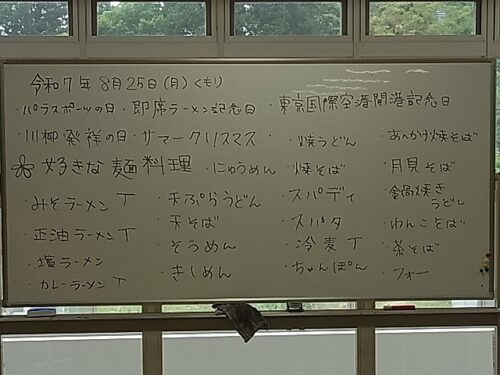 令和7年 8月25日(月) くもり
・パラスポーツの日・即席ラーメン記念日・東京国際空港開港記念日
・川柳発祥の日・サマークリスマス
好きな麺料理
・みそラーメン T
・正油ラーメン T
・塩ラーメン
・カレーラーメン T
・にゅうめん
・天ぷらうどん
・天そば
・そうめん
・きしめん
・焼うどん
・焼そば
・スパゲティ
・スパタ
・冷麦 T
・ちゃんぽん
・あんかけ焼そば
・月見そば
・鍋焼き
うどん
・わんこそば
・茶そば
・フォー